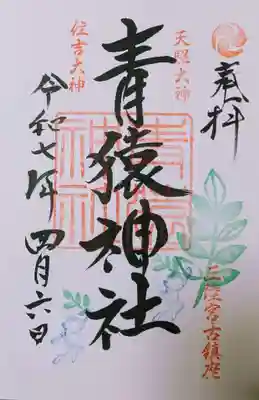 奉拝
古鎮座
天照大神
青猿神社
住吉大神
令和七年 四月六日